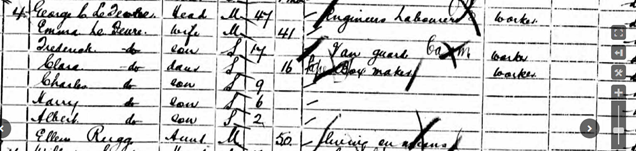 4 George C Le Deure. Head M 47 Engineers Labourer worker
Emma Le Deure. Wife M 41
Frederick do son S 17 Van guard Carm worker
Clara do daur S 16 Box maker worker
Charles do son S 9
Harry do son S 6
Albert do son S 2
Ellen Rugg Aunt M 50 living on means